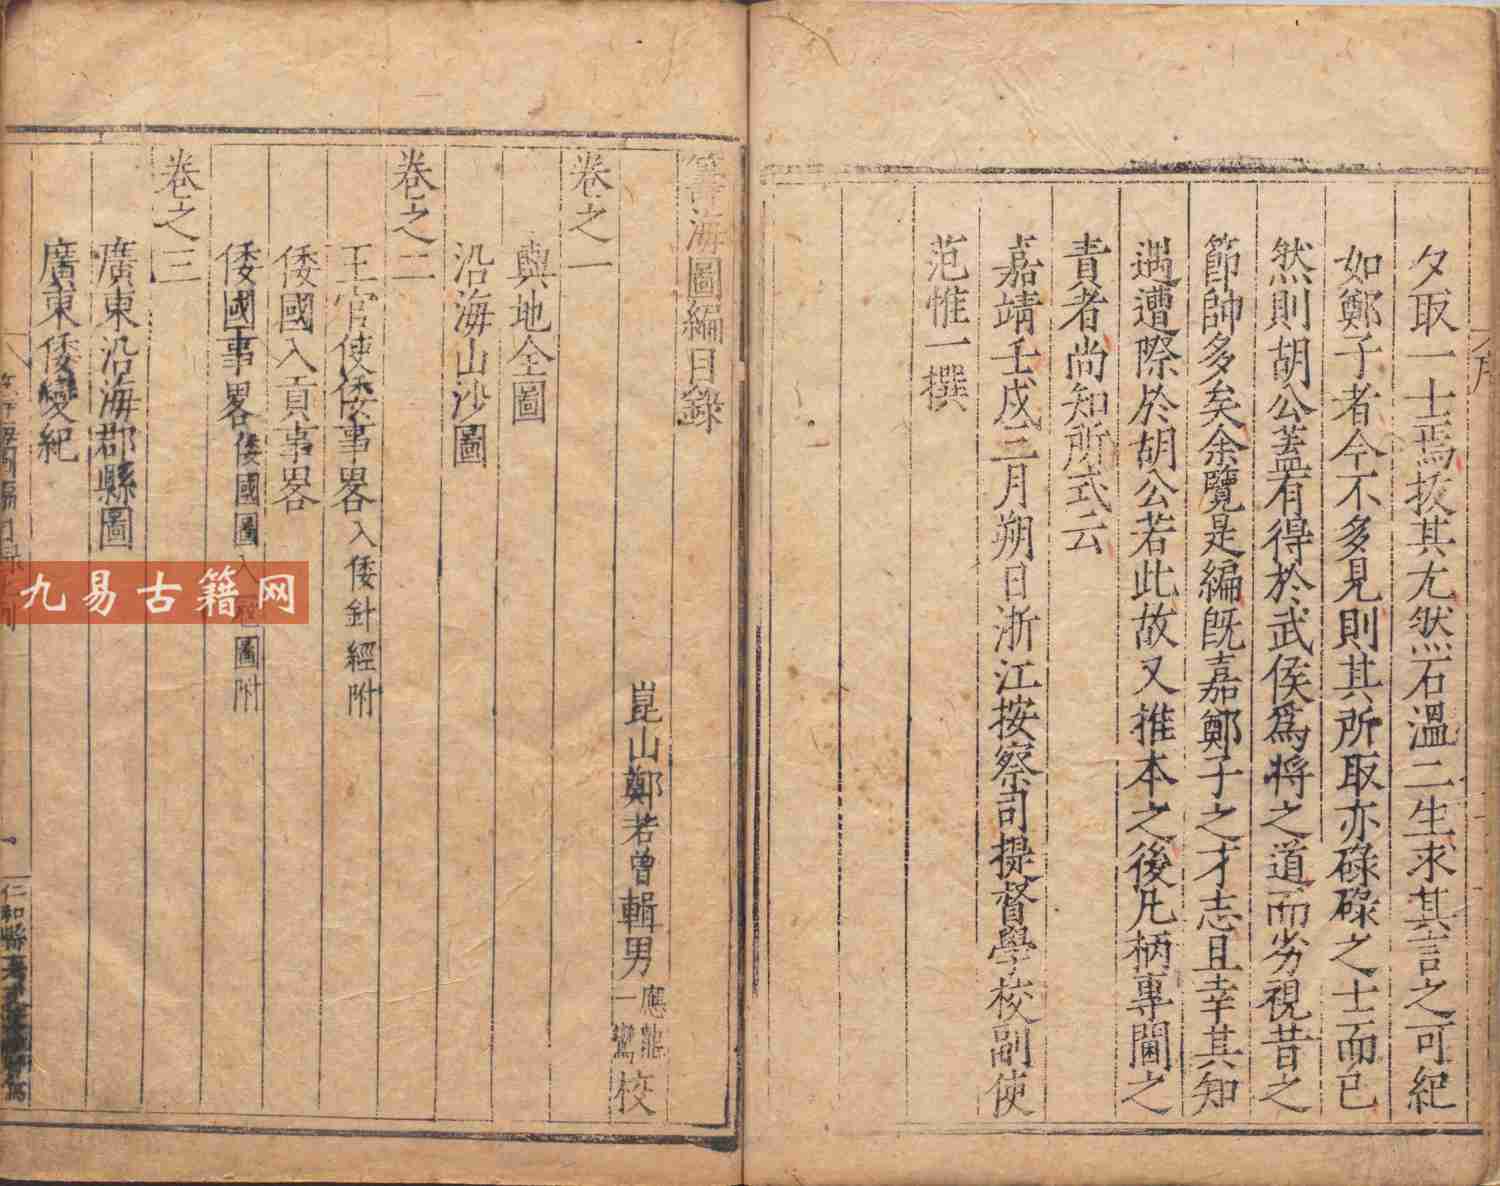 夕取一士焉拔其尤然石溫二生求其言之可紀
如鄭子者今不多見則其所取亦碌碌之士而已
然則胡公蓋有得於武侯爲將之道而劣視昔之
節帥多矣余覽是編既嘉鄭子之才志且幸其知
遇遭際於胡公若此故又推本之後凡柄專閫之
責者尚知所式云
嘉靖壬戌三月朔日浙江按察司提督學校副使
范惟一撰
籌海圖編目錄
崑山鄭若曾輯男應龍一鸞校
卷之一
輿地全圖
沿海山沙圖
卷之二
王官使倭事畧入倭針經附
倭國入貢事畧
倭國事畧倭國圖入圖附
卷之三
廣東沿海郡縣圖
廣東倭變紀
九易古籍网